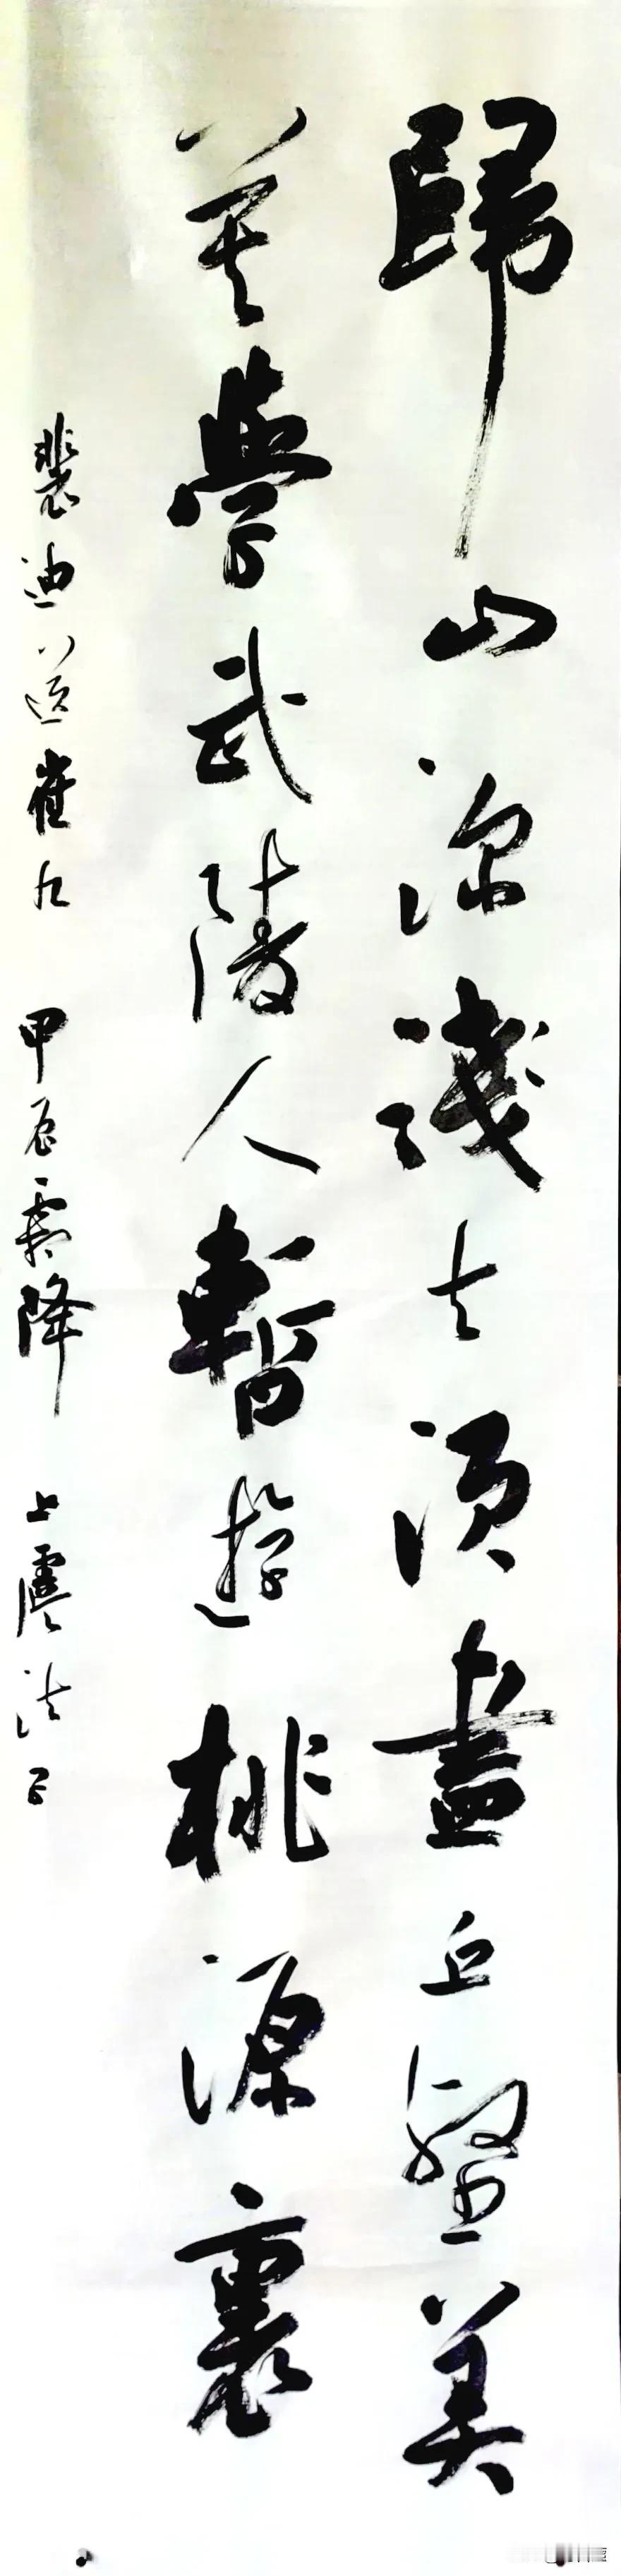 歸山深淺去須盡丘壑美
莫學武陵人暫遊桃源裏
裴迪送崔九 甲辰霜降 上虞法子